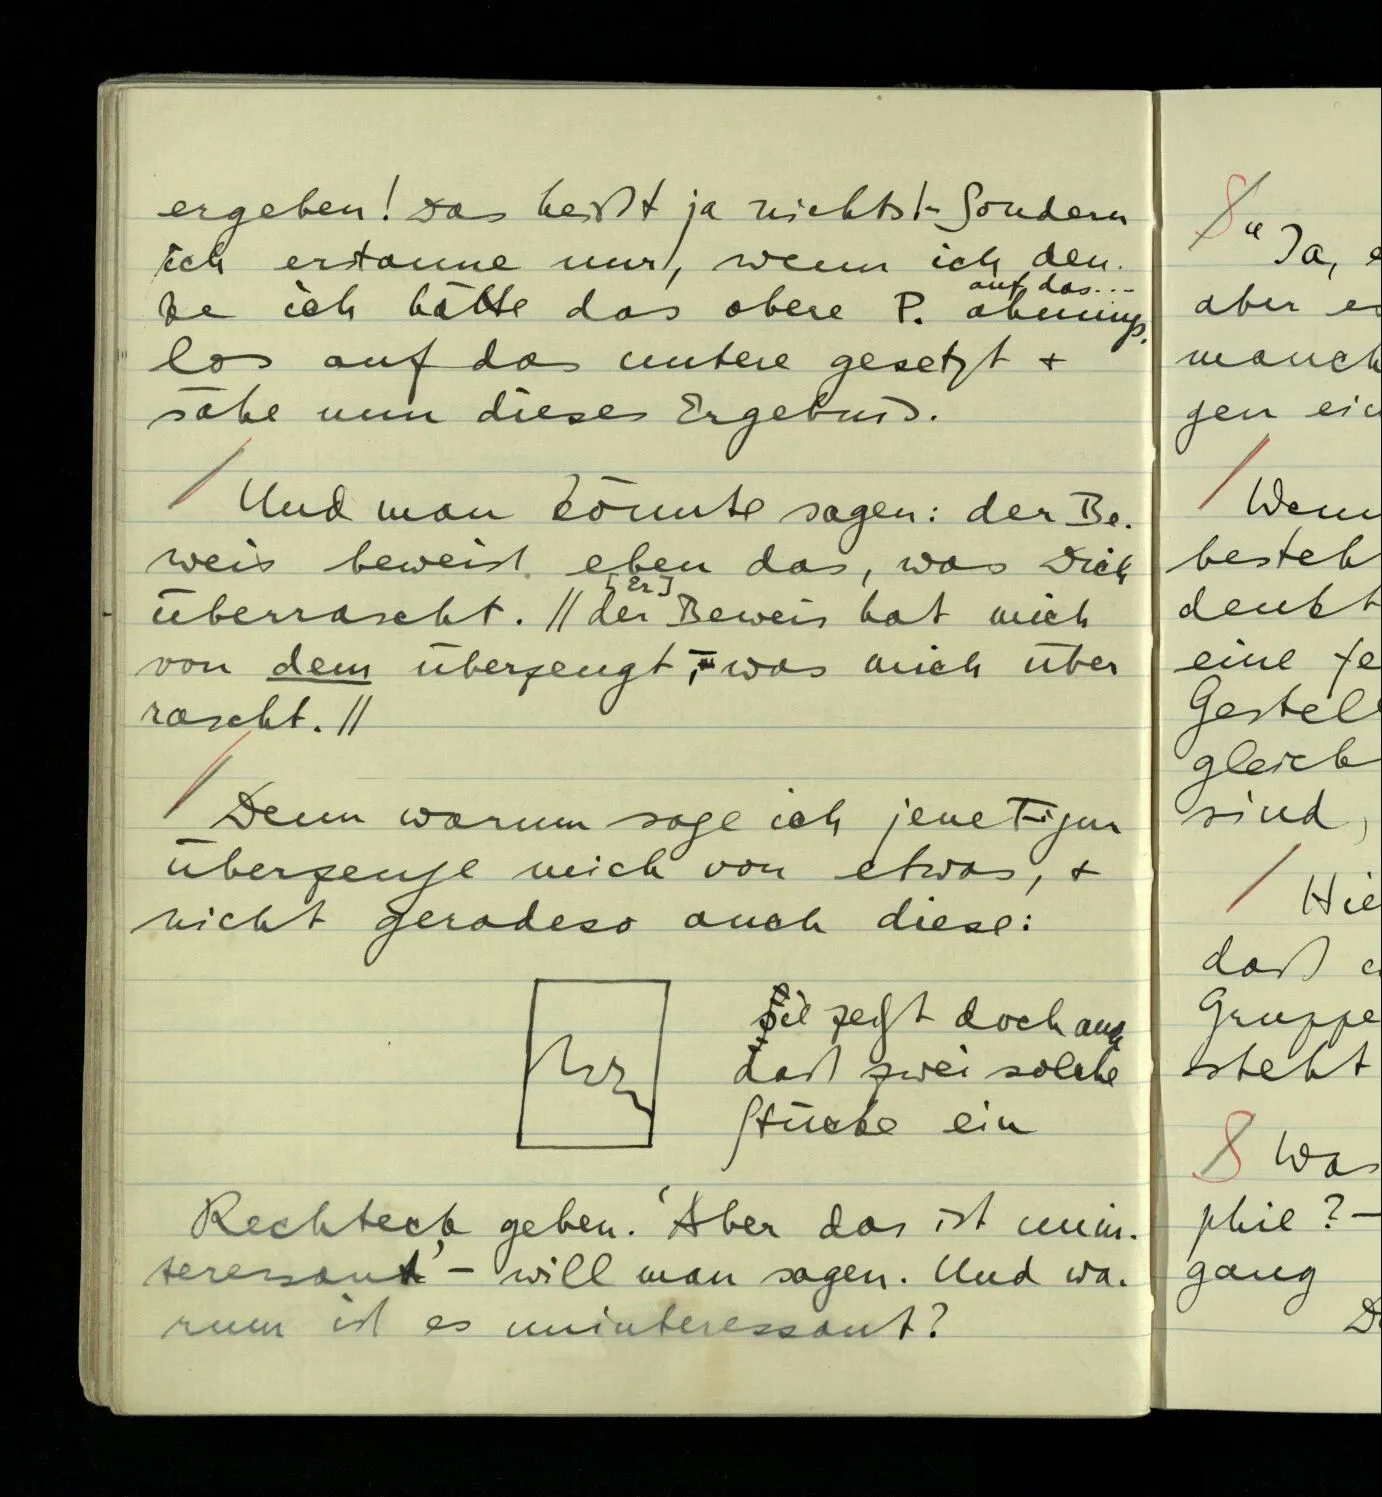 ergeben! Das heißt ja nichts! – Sondern
ich erstaune nur, wenn ich den-
ke ich hätte das obere P. ahnungs-
auf das...
los auf das untere gesetzt +
sähe nun dieses Ergebnis.
Und man könnte sagen: der Be-
weis beweist eben das, was Dich
[Er]
überrascht. // der Beweis hat mich
von dem überzeugt, was mich über
rascht. //
Denn warum sage ich jene Figur
überzeuge mich von etwas, +
nicht geradeso auch diese:
Sie zeigt doch auch
daß zwei solche
Stücke ein
Rechteck geben. 'Aber das ist unin-
teressant' – will man sagen. Und wa-
rum ist es uninteressant?
§ "Ja, e
aber es
manch
gen ein
Wenn
besteh
denkt
eine fe
Gestel
gleich
sind,
Hie
daß e
Gruppe
steht
§ Was
phie? –
gang
D